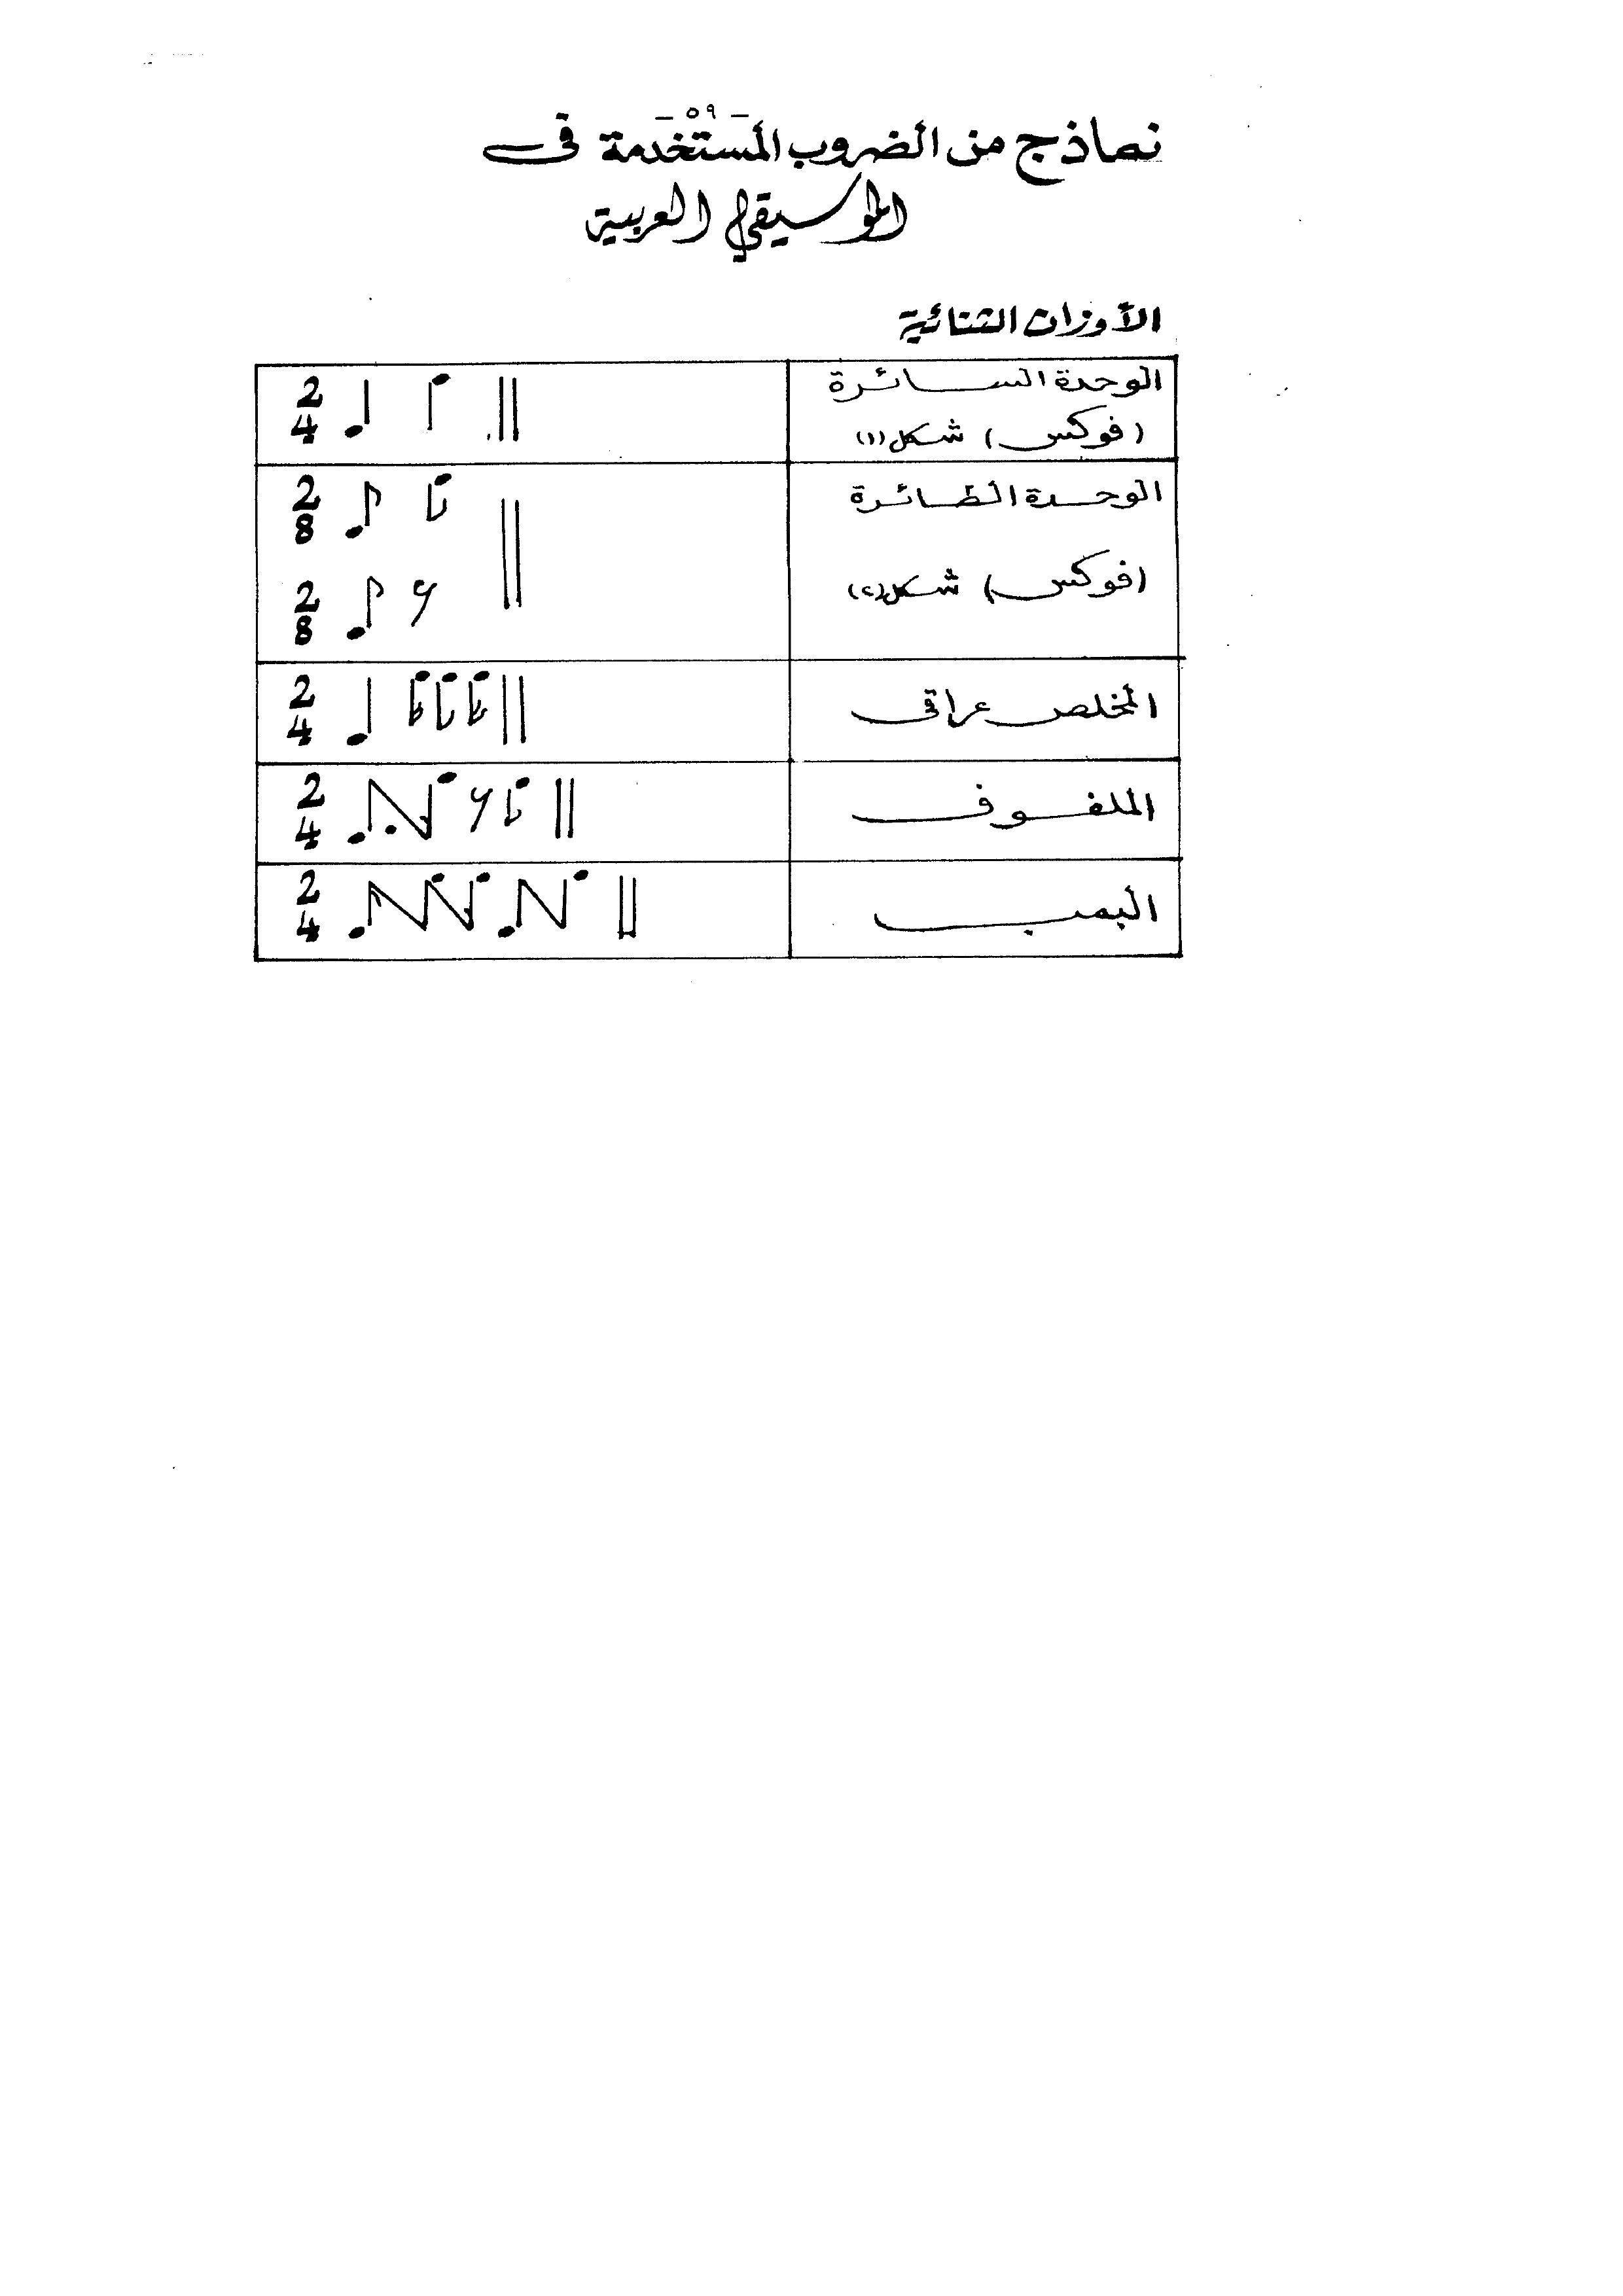 - ٥٩ -
نماذج من الضروب المستخدمة فى
الموسيقى العربية
الأوزان الثنائية
الوحدة السائرة
(فوكس) شكل (١)
2
4
الوحدة الطائرة
(فوكس) شكل (٢)
2
8
2
8
المخلص عراقى
2
4
الملفوف
2
4
البمب
2
4